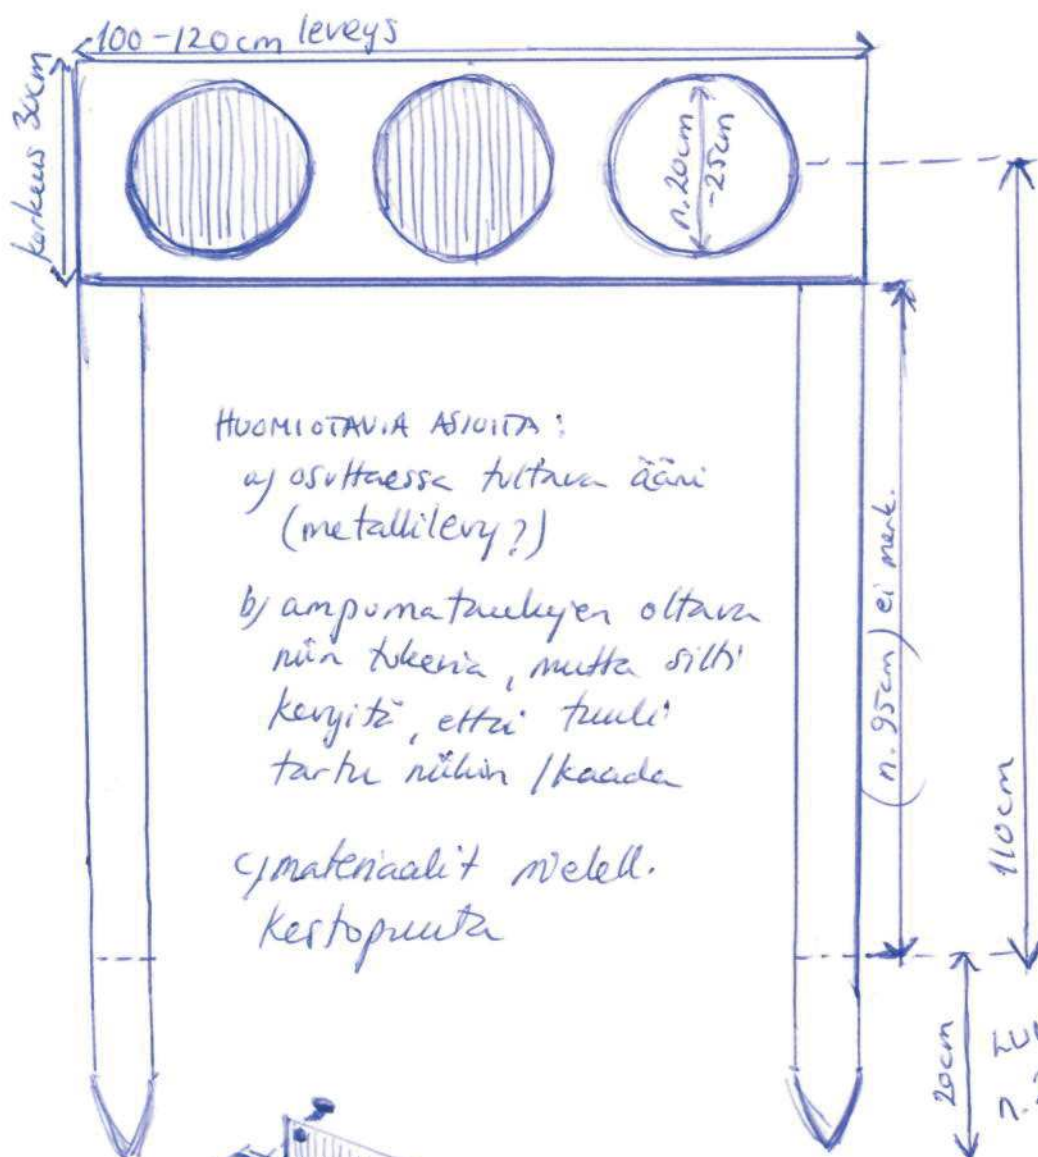 100-120cm leveys
korkeus 30cm
n. 20cm
-25cm
HUOMIOTAVIA ASIOITA:
a) osuttaessa tultava ääni
(metallilevy?)
b) ampumataulujen oltava
niin tukevia, mutta silti
kevyitä, ettei tuuli
tartu niihin / kaada
c) materiaalit mielell.
kestopuuta
(n. 95cm) ei merk.
110cm
20cm